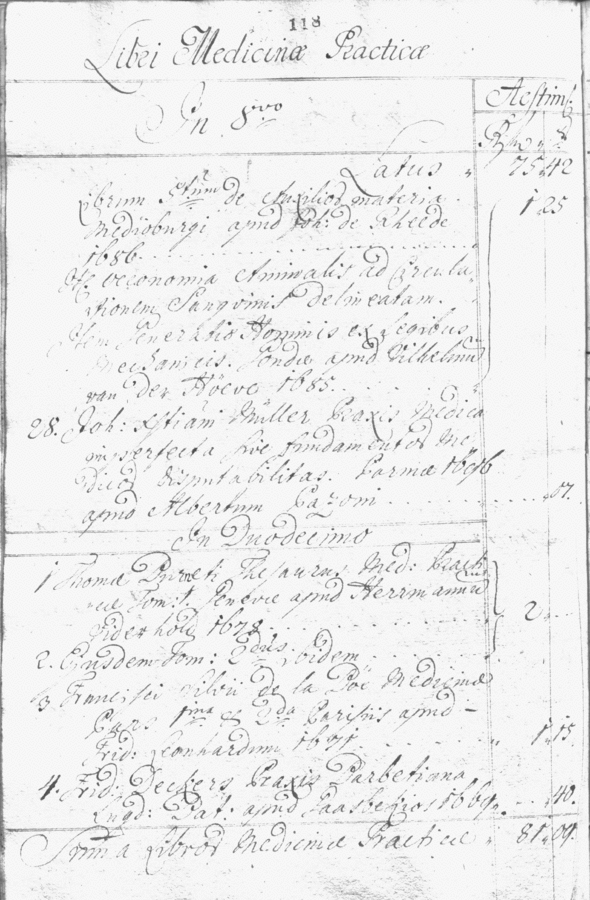 118
Libri Medicinæ Practicæ
In 8vo
Aestim:
Latus " 75 42
ibrum de Auxilior materia
Medioburgi apud Joh: de Rheede 1 25
1686
De oeconomia Animalis ad Circula
tionem Sangvinis delineatam.
Item Generatio Hominis ex Legibus
Mechanicis. Gondæ apud Vilhelmum
van der Höeve 1685.
28. Joh: Xstiani Müller Praxis Medica
imperfecta sive fundamentor Me
dicor disputabilitas. Parmæ 1696
apud Albertum Pazoni 07.
In Duodecimo
1 Thomæ Thesaurus Med: Practi
cæ Tom: 1. Genevæ apud Herrmannum
Widerhold 1678 2
2. Ejusdem Tom: 2dus ibidem
3 Francisci Silvii de la Böe Medicinæ
Pars 1ma et 2da Parisiis apud
Frid: Leonhardum 1671 " 1 15.
4. Frid: Deckers Praxis Barbetiana
Lugd: Bat: apud Gaasbekios 1669. 40.
Summa Libror Medicinæ Practicæ " 81 04.